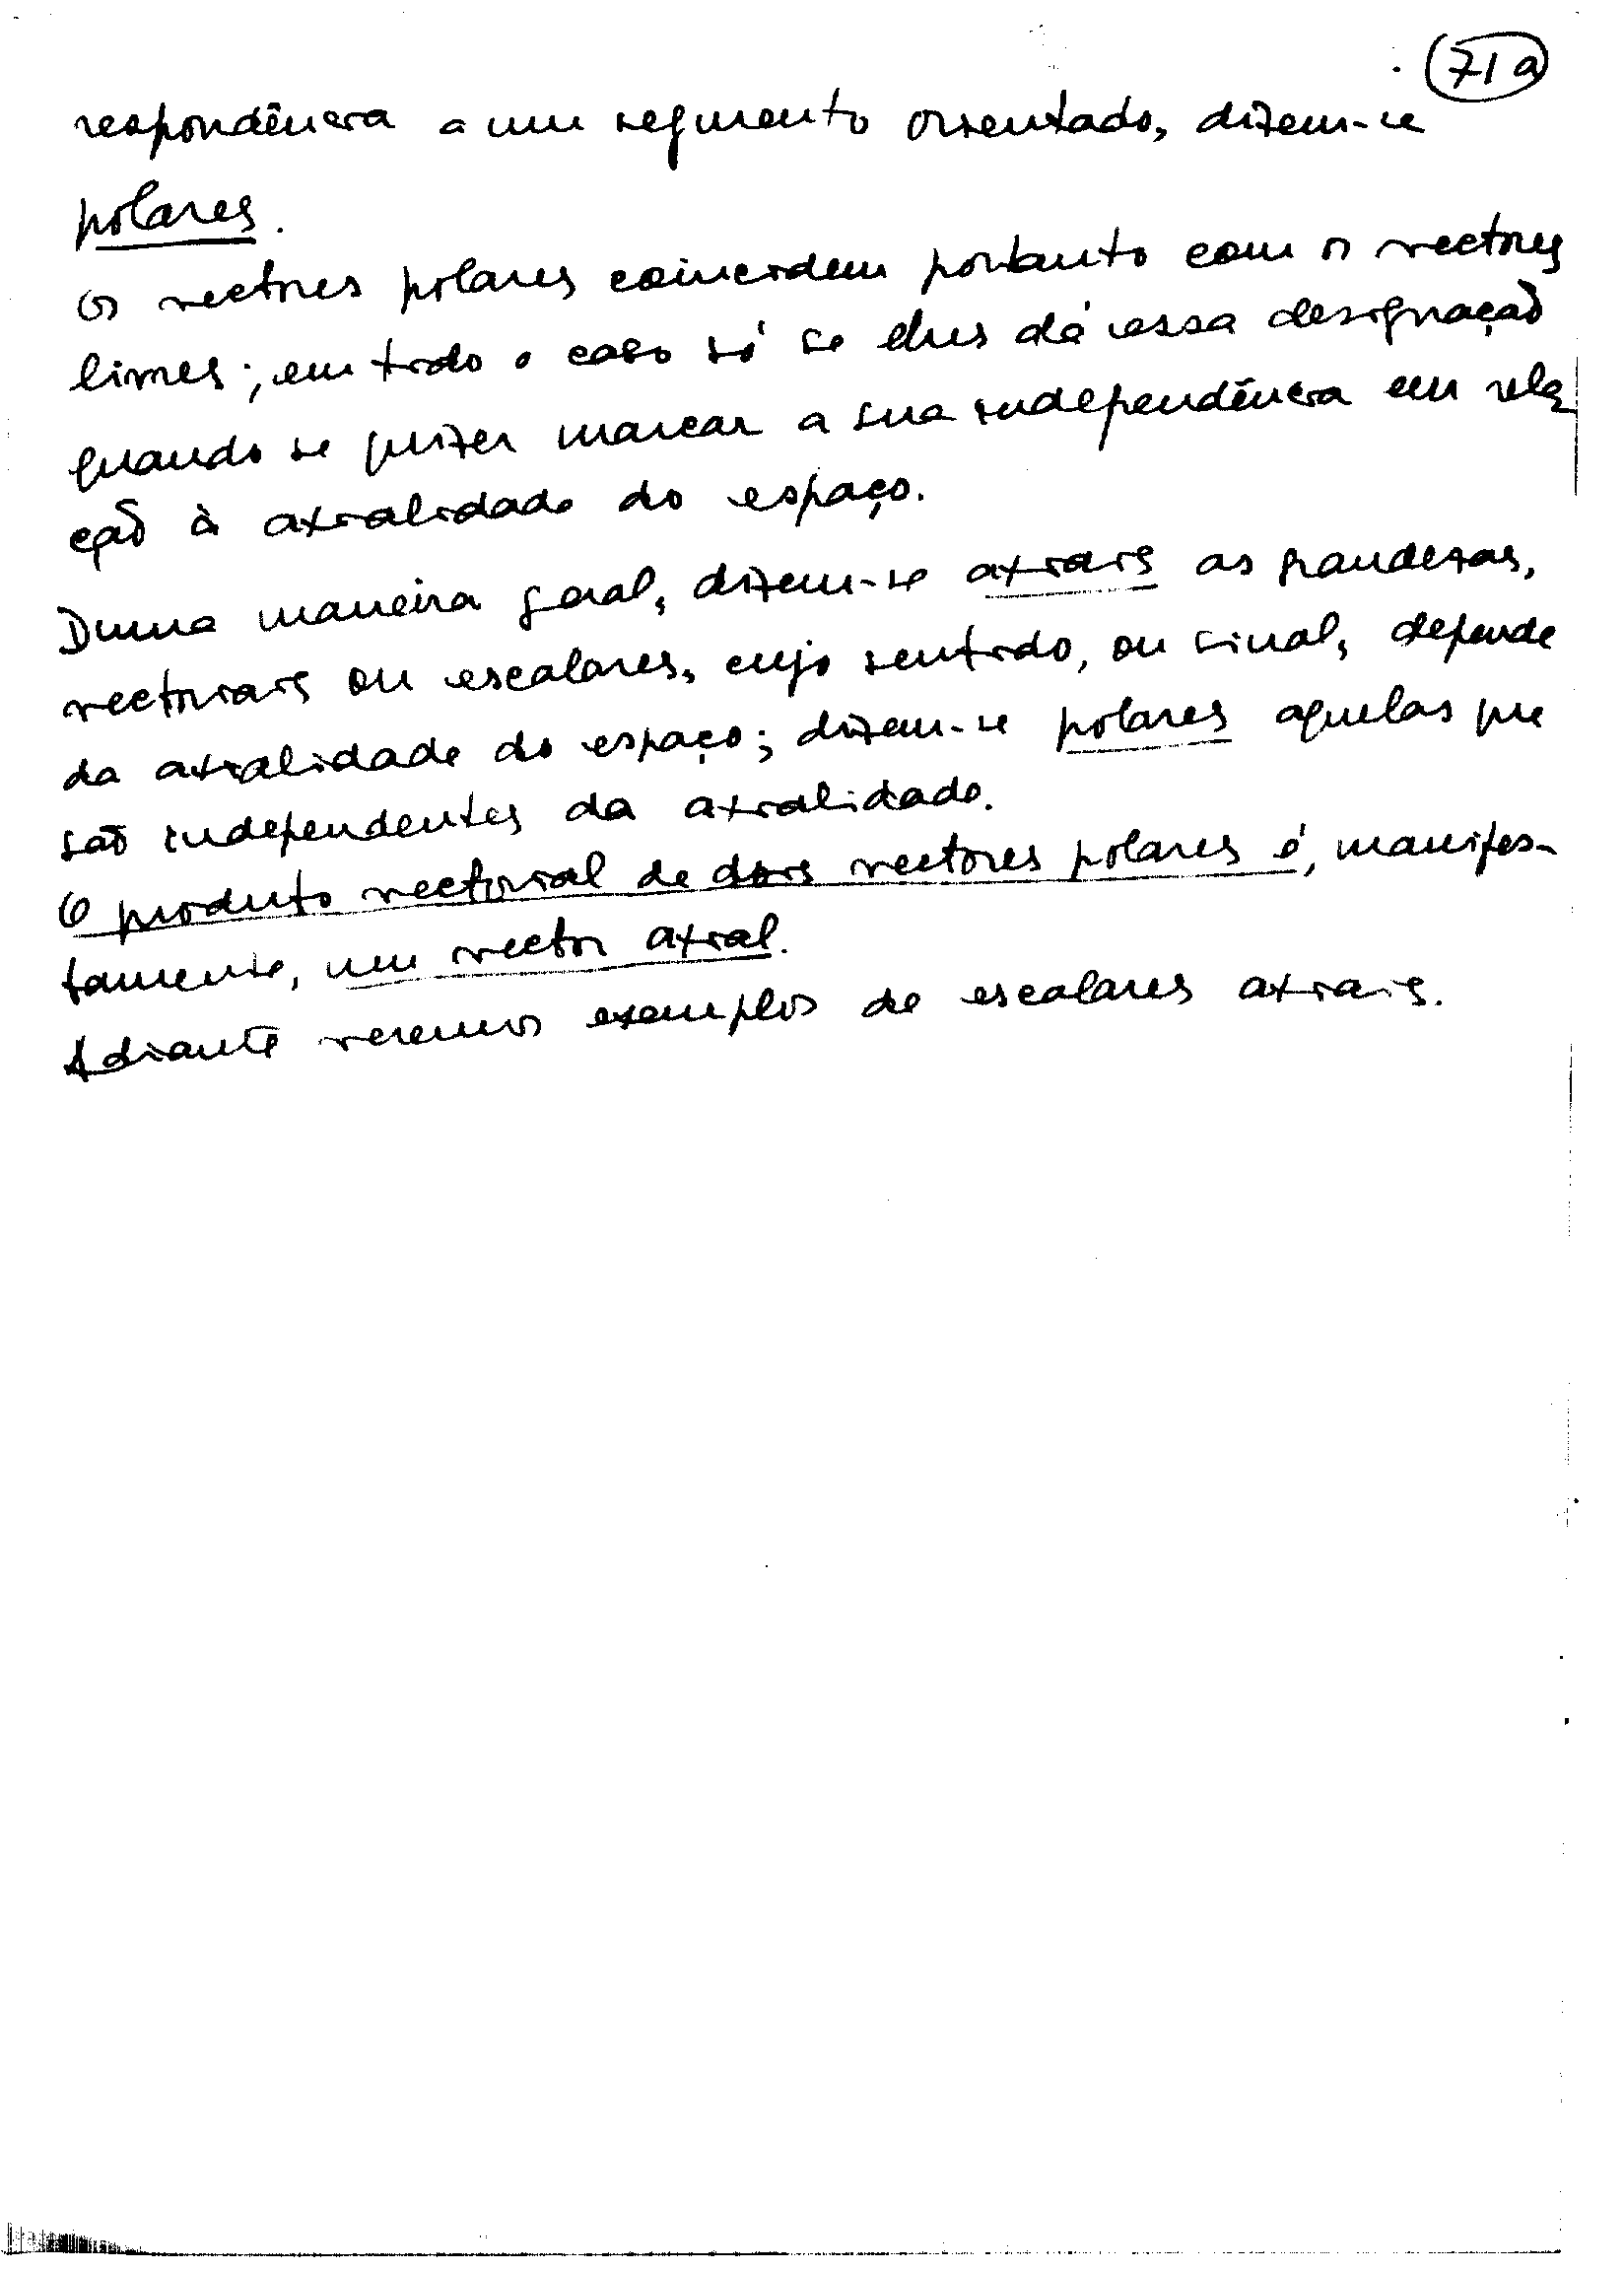 71a
respondência a um segmento orientado, dizem-se
polares.
Os vectores polares coincidem portanto com os vectores
livres; em todo o caso só se lhes dá essa designação
quando se quizer marcar a sua independência em rela
ção à axialidade do espaço.
Duma maneira geral, dizem-se axiais as grandezas,
vectoriais ou escalares, cujo sentido, ou sinal, depende
da axialidade do espaço; dizem-se polares aquelas que
são independentes da axialidade.
O produto vectorial de dois vectores polares é, manifes-
tamente, um vector axial.
Adiante veremos exemplos de escalares axiais.